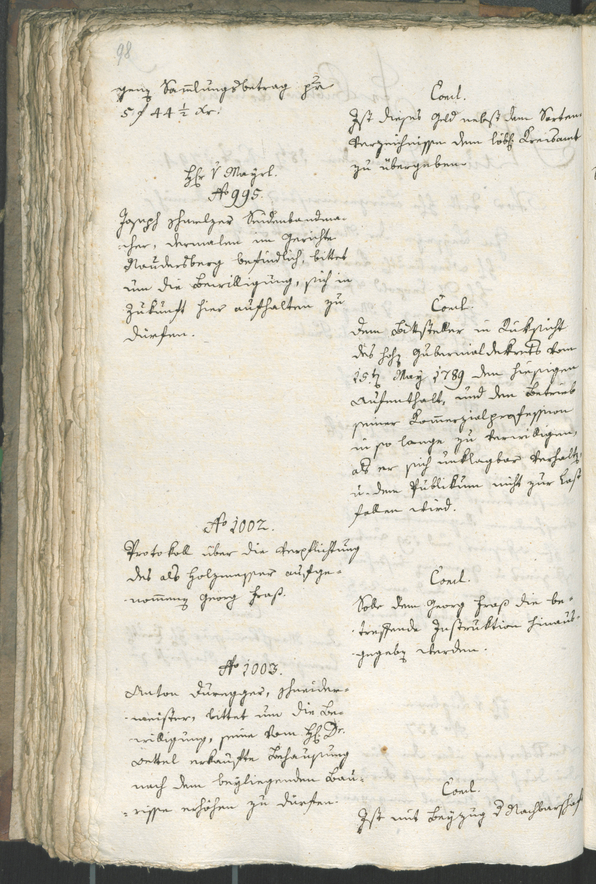 98
gene Sam̄lungsbetrag pr
5 f 44 ½ xr:
Concl.
Ist dieses Geld nebst dem Sorten
Verzeichnisse dem löbl. Kreisamt
zu übergeben.
Hr v Mayrl.
No 995.
Joseph Schmelzer Seidenbandma-
cher, dermalen im Gerichte
Naudersberg befindlich, bittet
um die Bewilligung, sich in
Zukunft hier aufhalten zu
dürfen.
Concl.
Dem Bittsteller in Rüksicht
des hohen Gubernialdekrets vom
15ten May 1789 den hiesigen
Aufenthalt, und den Betrieb
seiner Kom̄erzialprofession
in so lange zu bewilligen,
als er sich unklagbar verhalte,
u. dem Publikum nicht zur Last
fallen wird.
No 1002.
Protokoll über die Verpflichtung
des als Holzmesser aufge-
nom̄enen Georg Fraß.
Concl.
Solle dem Georg Fraß die be-
treffende Instruktion hinaus-
gegeben werden.
No 1003.
Anton Duregger, Schneider-
meister, bittet um die Be-
willigung, seine vom Hr Dr.
Oettel erkaufte Behausung
nach dem beyliegenden Bau-
risse erhöhen zu dürfen.
Concl.
Ist mit Beyzug d Nachbarschaft